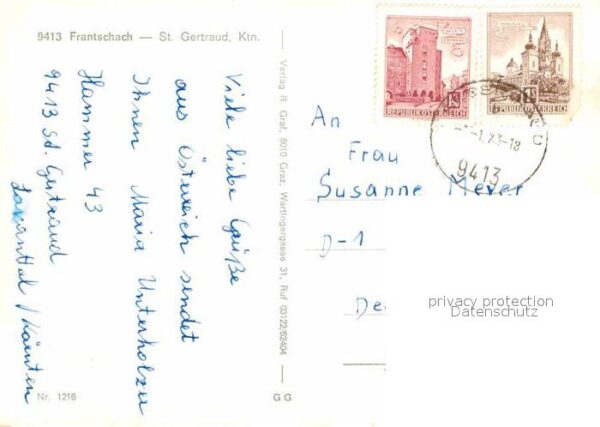 9413 Frantschach — St. Gertraud, Ktn.
Viele liebe Grüße
aus Österreich sendet
Ihnen Maria Unterholzer
Hammer 43
9413 St. Gertraud
Lavanttal / Kärnten
Nr. 1216
Verlag R. Graf, 8010 Graz, Wartingergasse 31, Ruf 03122/62404
G G
REPUBLIK ÖSTERREICH
REPUBLIK ÖSTERREICH
1.73-18
C
9413
An
Frau
Susanne Meyer
D-1
De
privacy protection
Datenschutz